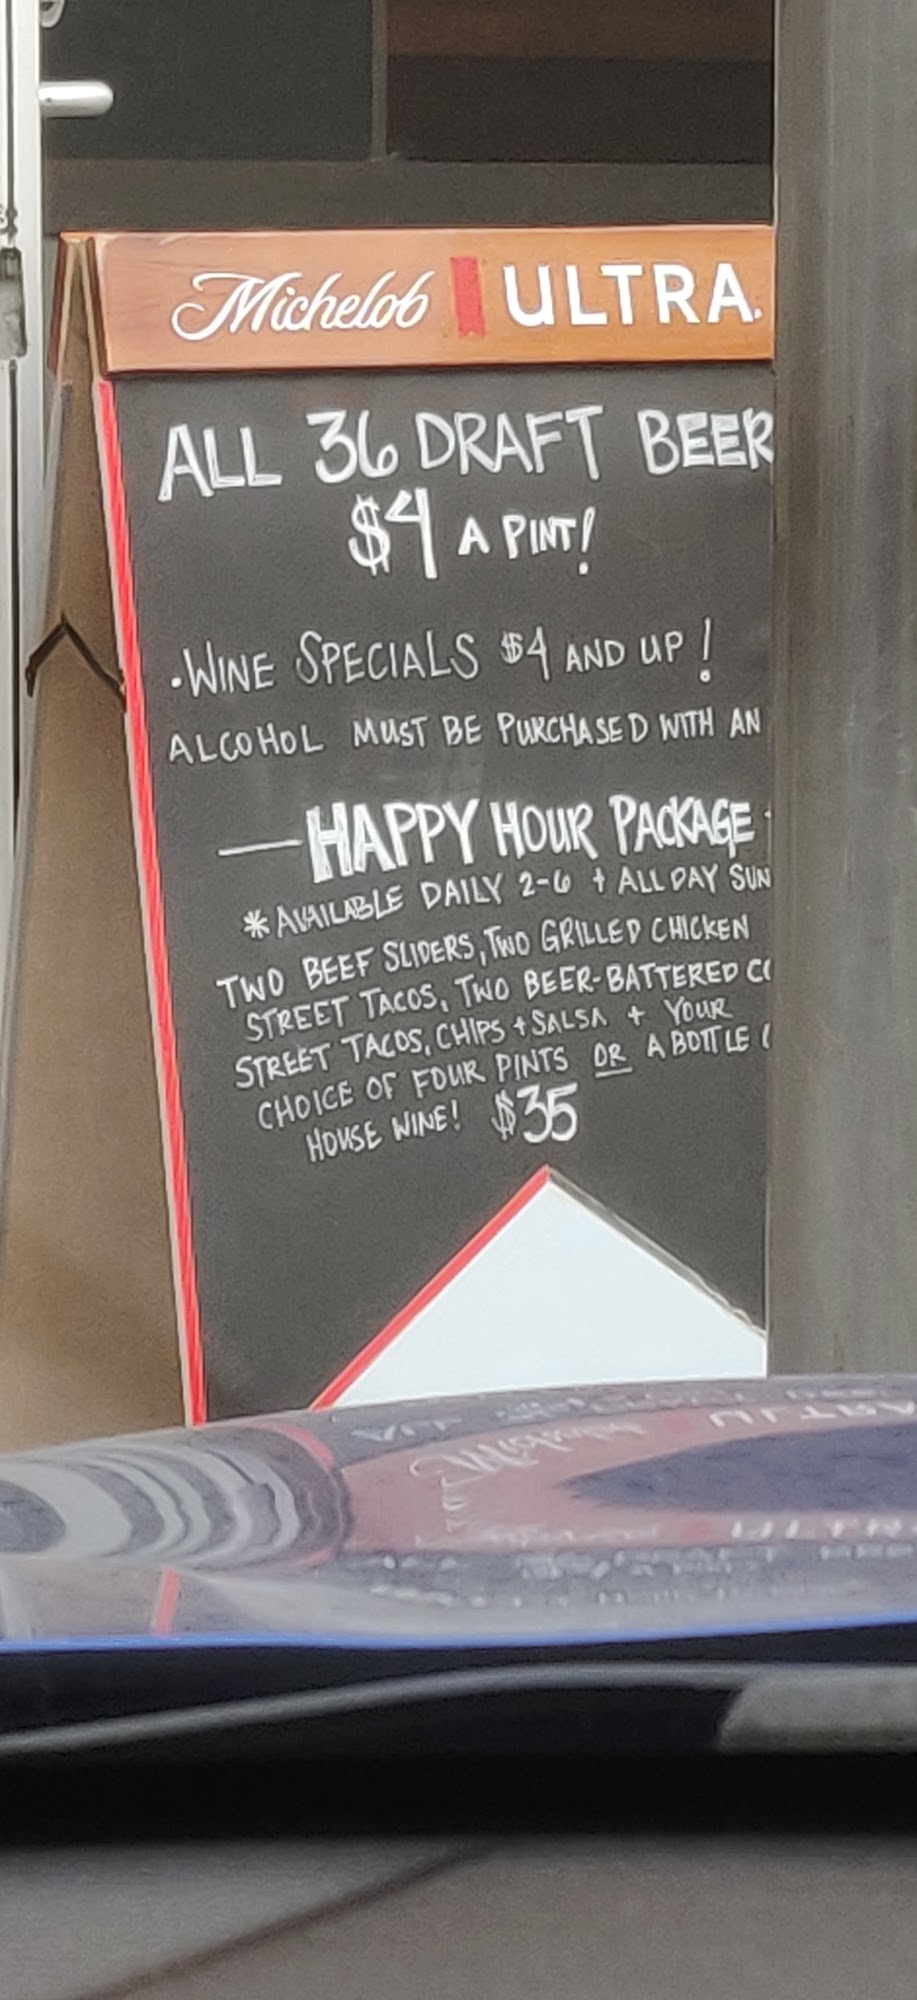 Michelob ULTRA.
ALL 36 DRAFT BEER
$4 A PINT!
·WINE SPECIALS $4 AND UP!
ALCOHOL MUST BE PURCHASED WITH AN
— HAPPY HOUR PACKAGE -
*AVAILABLE DAILY 2-6 + ALL DAY SUN
TWO BEEF SLIDERS, TWO GRILLED CHICKEN
STREET TACOS, TWO BEER-BATTERED
STREET TACOS, CHIPS + SALSA + YOUR
CHOICE OF FOUR PINTS OR A BOTTLE
HOUSE WINE! $35